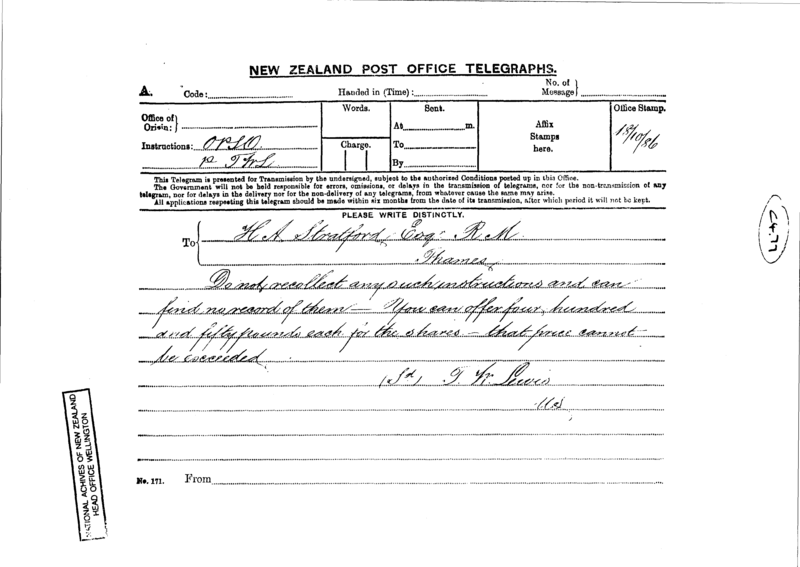 NEW ZEALAND POST OFFICE TELEGRAPHS.
A. Code: Handed in (Time): No. of Message
Office of Origin: Words. Sent. Affix Stamps here. Office Stamp.
At m. 13/10/86
Instructions: OPSO Charge. To
pr T.W.L By
This Telegram is presented for Transmission by the undersigned, subject to the authorised Conditions posted up in this Office.
The Government will not be held responsible for errors, omissions, or delays in the transmission of telegrams, nor for the non-transmission of any
telegram, nor for delays in the delivery nor for the non-delivery of any telegrams, from whatever cause the same may arise.
All applications respecting this telegram should be made within six months from the date of its transmission, after which period it will not be kept.
PLEASE WRITE DISTINCTLY.
To H A Stratford, Esqr R.M.
Thames
Do not recollect any such instructions and can
find no record of them — You can offer four hundred
and fifty pounds each for the shares — that price cannot
be exceeded
(Sd) T. W. Lewis
US
No. 171. From
NATIONAL ACHIVES OF NEW ZEALAND
HEAD OFFICE WELLINGTON